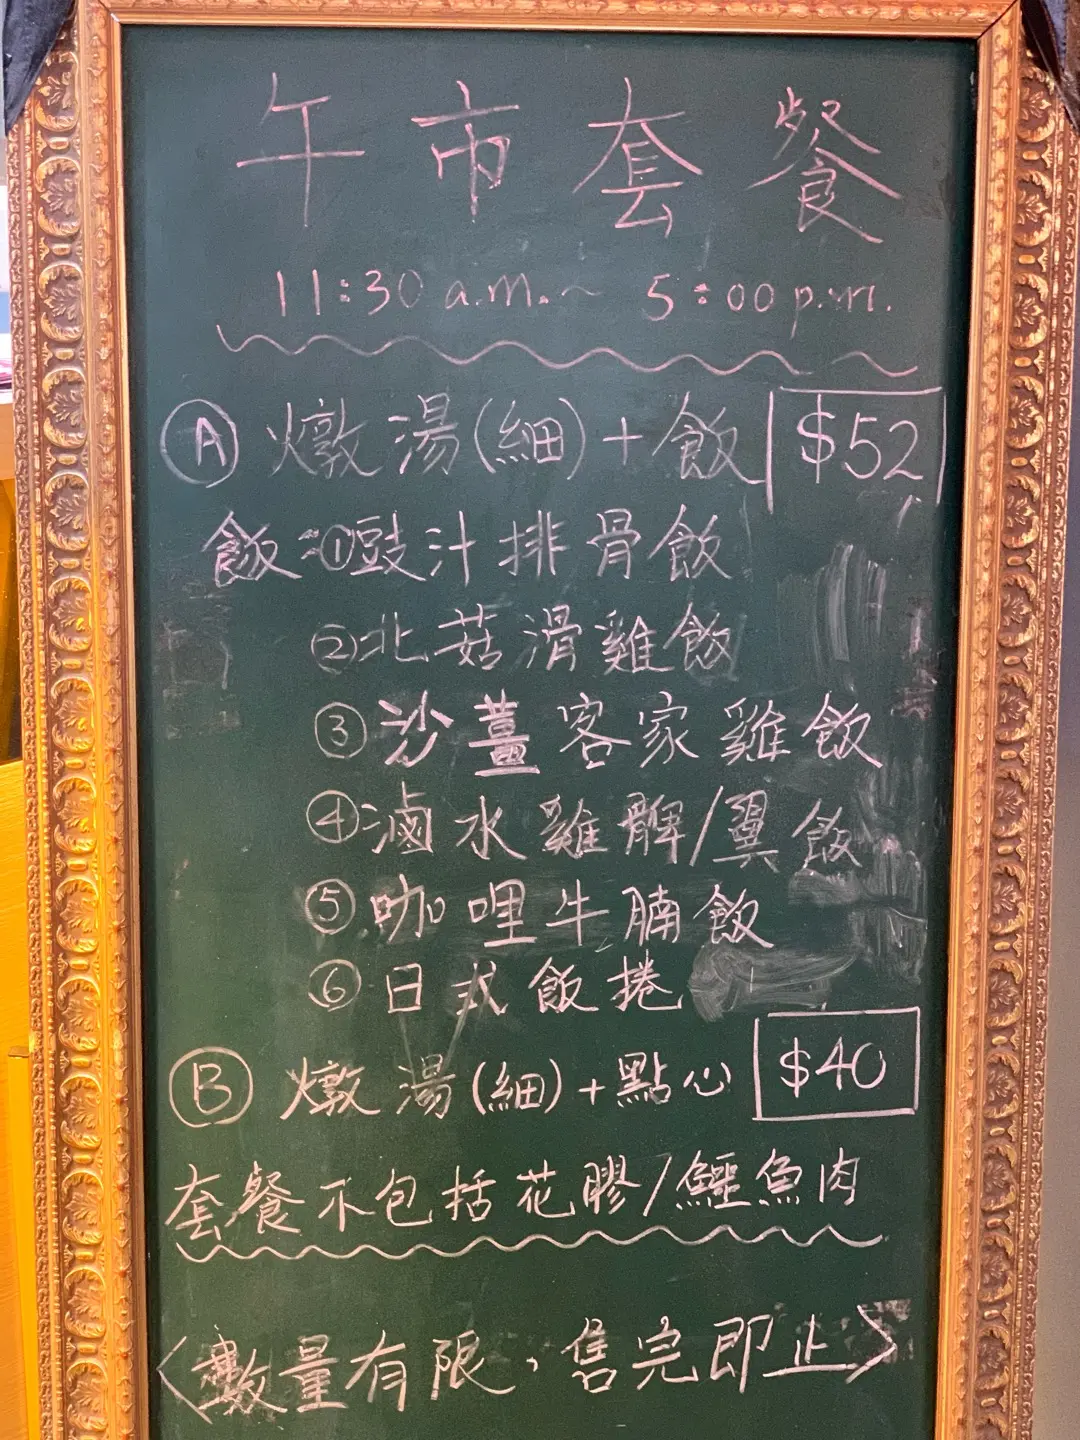 午市套餐
11:30 a.m. ~ 5:00 p.m.
Ⓐ 燉湯(細)+飯 $52
飯:①豉汁排骨飯
②北菇滑雞飯
③沙薑客家雞飯
④滷水雞髀/翼飯
⑤咖哩牛腩飯
⑥日式飯捲
Ⓑ 燉湯(細)+點心 $40
套餐不包括花膠/鱷魚肉
〈數量有限，售完即止〉